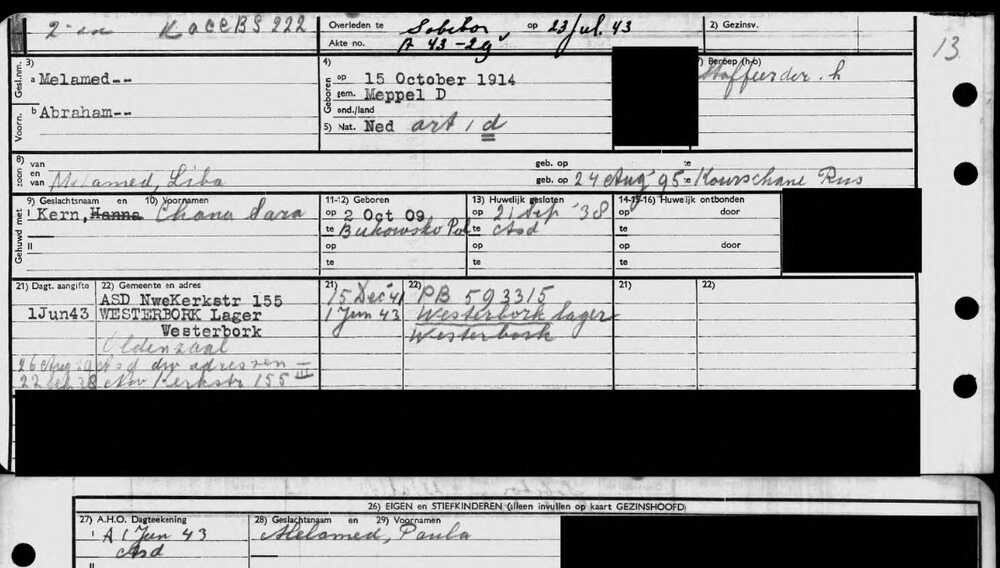 2-en K acc BS 222
Overleden te Sobibor, op 23 Jul. 43
Akte no. A 43-29
2) Gezinsv.
13
Gesl.nm. 3) a Melamed--
Voorn. b Abraham--
Geboren 4) op 15 October 1914
gem. Meppel D
ond./land
5) Nat. Ned art 1 d
Beroep (h-b)
Stoffeerder. h
8) zoon van
en
van Melamed, Liba
geb. op te
geb. op 24 Aug '95 te Kourschane Rus
Gehuwd met 9) Geslachtsnaam en 10) Voornamen
I Kern, Hanna Chana Sara
II
11-12) Geboren
op 2 Oct 09
te Bukowsko Pol
op
te
13) Huwelijk gesloten
op 21 Sep '38
te Asd
op
te
14-15-16) Huwelijk ontbonden
op door
te
op door
te
21) Dagt. aangifte 22) Gemeente en adres
ASD NweKerkstr 155
1Jun43 WESTERBORK Lager
Westerbork
Oldenzaal
26 Aug Asd div adressen
22 Sep 38 Nw Kerkstr 155 III
21) 22)
15 Dec '41 PB 593315
1 Jun 43 Westerbork Lager
Westerbork
21) 22)
26) EIGEN en STIEFKINDEREN (alleen invullen op kaart GEZINSHOOFD)
27) A.H.O. Dagteekening 28) Geslachtsnaam en 29) Voornamen
I A 1 Jun 43 Melamed, Paula
Asd
II